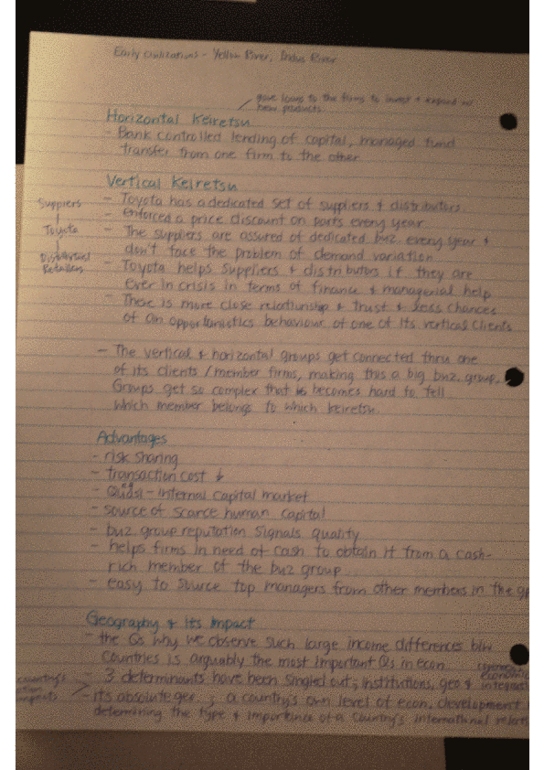 Early Civilizations - Yellow River, Indus River
give loans to the firms to invest & expand
new products.
Horizontal Keiretsu
- Bank controlled lending of capital, managed fund
transfer from one firm to the other
Vertical Keiretsu
- Toyota has a dedicated set of suppliers & distributors
- enforced a price discount on parts every year
- The suppliers are assured of dedicated buz. every year &
don't face the problem of demand variation
- Toyota helps suppliers & distributors if they are
ever in crisis in terms of finance & managerial help
- There is more close relationship & trust & less chances
of an opportunistics behaviour of one of its vertical clients
Suppliers
|
Toyota
|
Retailers
- The vertical & horizontal groups get connected thru one
of its clients / member firms, making this a big buz. group.
Groups get so complex that becomes hard to tell
which member belongs to which keiretsu.
Advantages
- risk sharing
- transaction cost ↓
- Quasi-internal capital market
- source of scarce human capital
- buz group reputation signals quality
- helps firms in need of cash to obtain it from a cash-
rich member of the buz group
- easy to source top managers from other members in the
Geography & its Impact
- the Qs why we observe such large income differences b/w
countries is arguably the most important Qs in econ.
- 3 determinants have been singled out; institutions, geo &
- its absolute geo ; a country's own level of econ. development
determining the type & importance of a country's international
country's